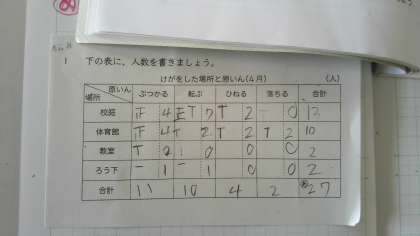 1 下の表に、人数を書きましょう。
けがをした場所と原いん(4月) (人)
原いん 場所 ぶつかる 転ぶ ひねる 落ちる 合計
校庭 正 4 正T 7 T 2 0
体育館 正 4 T 2 T 2 T 2 10
教室 T 2 0 0 0 2
ろう下 一 1 一 1 0 0 2
合計 11 10 4 2 27